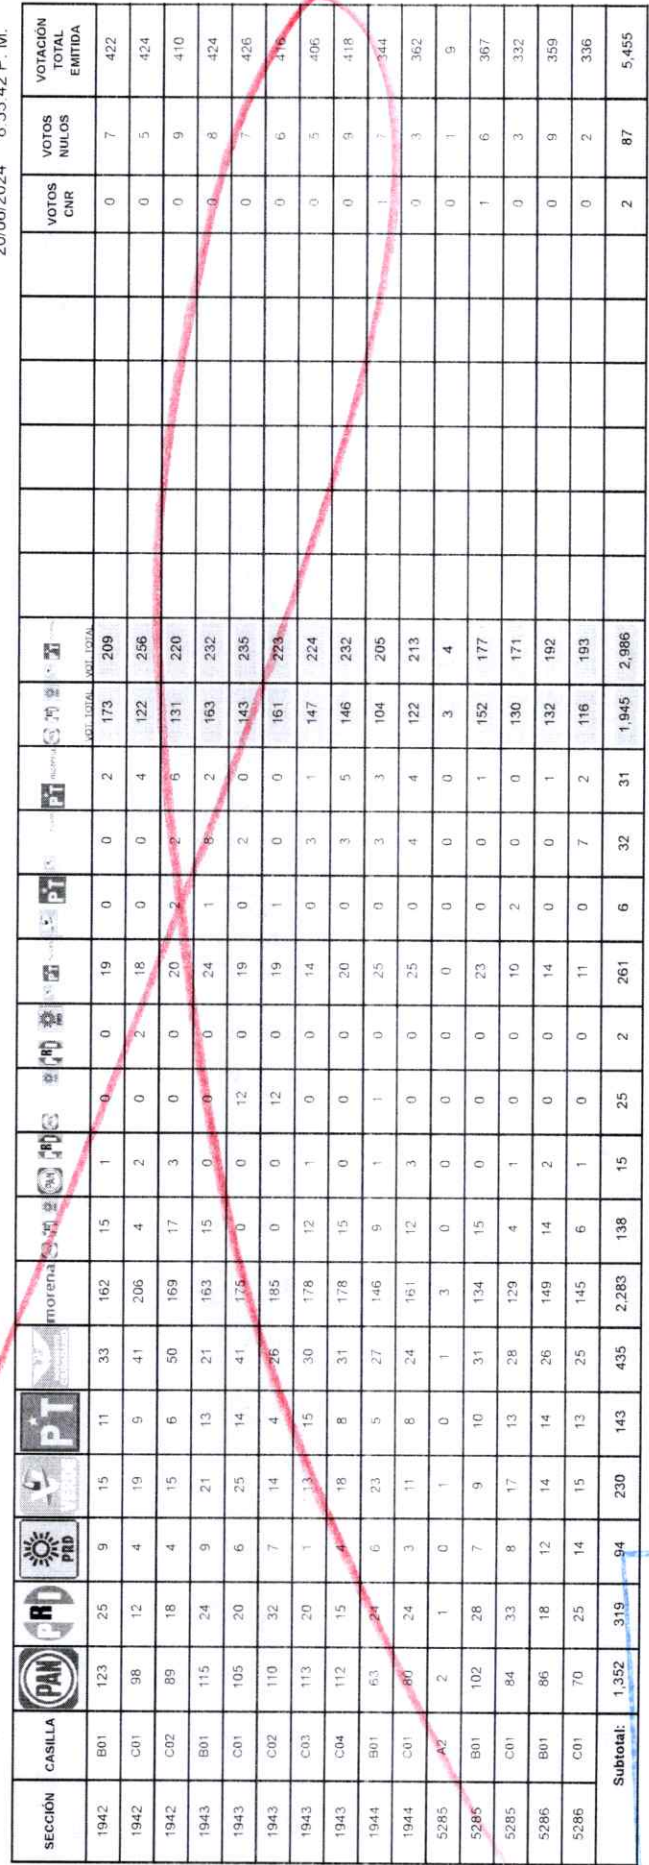 20/06/2024 8:53:42 P. M.
SECCIÓN CASILLA PAN PRD PRD VERDE PT morena PAN PRD PT PT VOTOS CNR VOTOS NULOS VOTACIÓN TOTAL EMITIDA
VOT. TOTAL VOT. TOTAL
1942 B01 123 25 9 15 11 33 162 15 1 0 0 19 0 0 2 173 209 0 7 422
1942 C01 98 12 4 19 9 41 206 4 2 0 2 18 0 0 4 122 256 0 5 424
1942 C02 89 18 4 15 6 50 169 17 3 0 0 20 2 2 6 131 220 0 9 410
1943 B01 115 24 9 21 13 21 163 15 0 0 0 24 1 8 2 163 232 0 8 424
1943 C01 105 20 6 25 14 41 175 0 0 12 0 19 0 2 0 143 235 0 7 426
1943 C02 110 32 7 14 4 26 185 0 0 12 0 19 1 0 0 161 223 0 6 416
1943 C03 113 20 1 13 15 30 178 12 1 0 0 14 0 3 1 147 224 0 5 406
1943 C04 112 15 4 18 8 31 178 15 0 0 0 20 0 3 5 146 232 0 9 418
1944 B01 63 24 6 23 5 27 146 9 1 1 0 25 0 3 3 104 205 1 7 344
1944 C01 80 24 3 11 8 24 161 12 3 0 0 25 0 4 4 122 213 0 3 362
5285 A2 2 1 0 1 0 1 3 0 0 0 0 0 0 0 0 3 4 0 1 9
5285 B01 102 28 7 9 10 31 134 15 0 0 0 23 0 0 1 152 177 1 6 367
5285 C01 84 33 8 17 13 28 129 4 1 0 0 10 2 0 0 130 171 0 3 332
5286 B01 86 18 12 14 14 26 149 14 2 0 0 14 0 0 1 132 192 0 9 359
5286 C01 70 25 14 15 13 25 145 6 1 0 0 11 0 7 2 116 193 0 2 336
Subtotal: 1,352 319 94 230 143 435 2,283 138 15 25 2 261 6 32 31 1,945 2,986 2 87 5,455